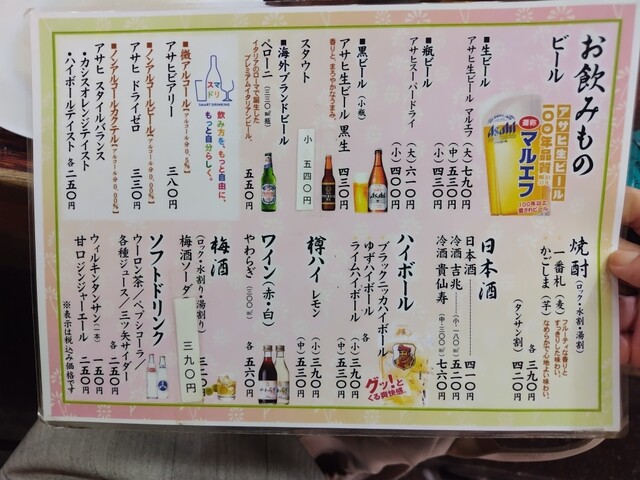 お飲みもの
ビール
アサヒ生ビール
100年品質
通称
マルエフ
Asahi
■生ビール
アサヒ生ビール マルエフ
(大)七九〇円
(中)五三〇円
(小)四三〇円
■瓶ビール
アサヒスーパードライ
(大)六一〇円
(小)四〇〇円
■黒ビール(小瓶)
アサヒ生ビール 黒生 四三〇円
香りと、まろやかなうまみ。
スタウト
小 五四〇円
■海外ブランドビール
ペローニ
イタリアのローマで誕生した
プレミアムイタリアンビール。
五五〇円
スマドリ
SMART DRINKING
飲み方を、もっと自由に、
もっと自分らしく。
■微アルコール(アルコール分0.5%)
アサヒビアリー 三八〇円
■ノンアルコールビール(アルコール分0.00%)
アサヒ ドライゼロ 三三〇円
■ノンアルコールカクテル(アルコール分0.00%)
アサヒ スタイルバランス
・カシスオレンジテイスト
・ハイボールテイスト 各 二五〇円
焼酎(ロック・水割・湯割)
一番札(麦)
フルーティな香りと
すっきりした味わい。
かごしま(芋)
なめらかで心地よい味わい。
各 三九〇円
(タンサン割) 四二〇円
日本酒
日本酒 四一〇円
冷酒 吉兆 (小・一八〇㎖) 五一〇円
冷酒 貴仙寿 (中・三〇〇㎖) 七六〇円
ハイボール
ブラックニッカハイボール
ゆずハイボール
ライムハイボール
各 (小)三九〇円
(中)五三〇円
グッ!と
くる爽快感。
樽ハイ レモン
(小)三九〇円
(中)五三〇円
ワイン(赤・白)
やわらぎ
各 五六〇円
梅酒
(ロック・水割り・湯割り)
梅酒ソーダ
三九〇円
ソフトドリンク
ウーロン茶/ペプシコーラ/
各種ジュース/三ツ矢サイダー
各 二五〇円
ウィルキンタンサン(一本) 一五〇円
甘口ジンジャーエール 二五〇円
※表示は税込み価格です